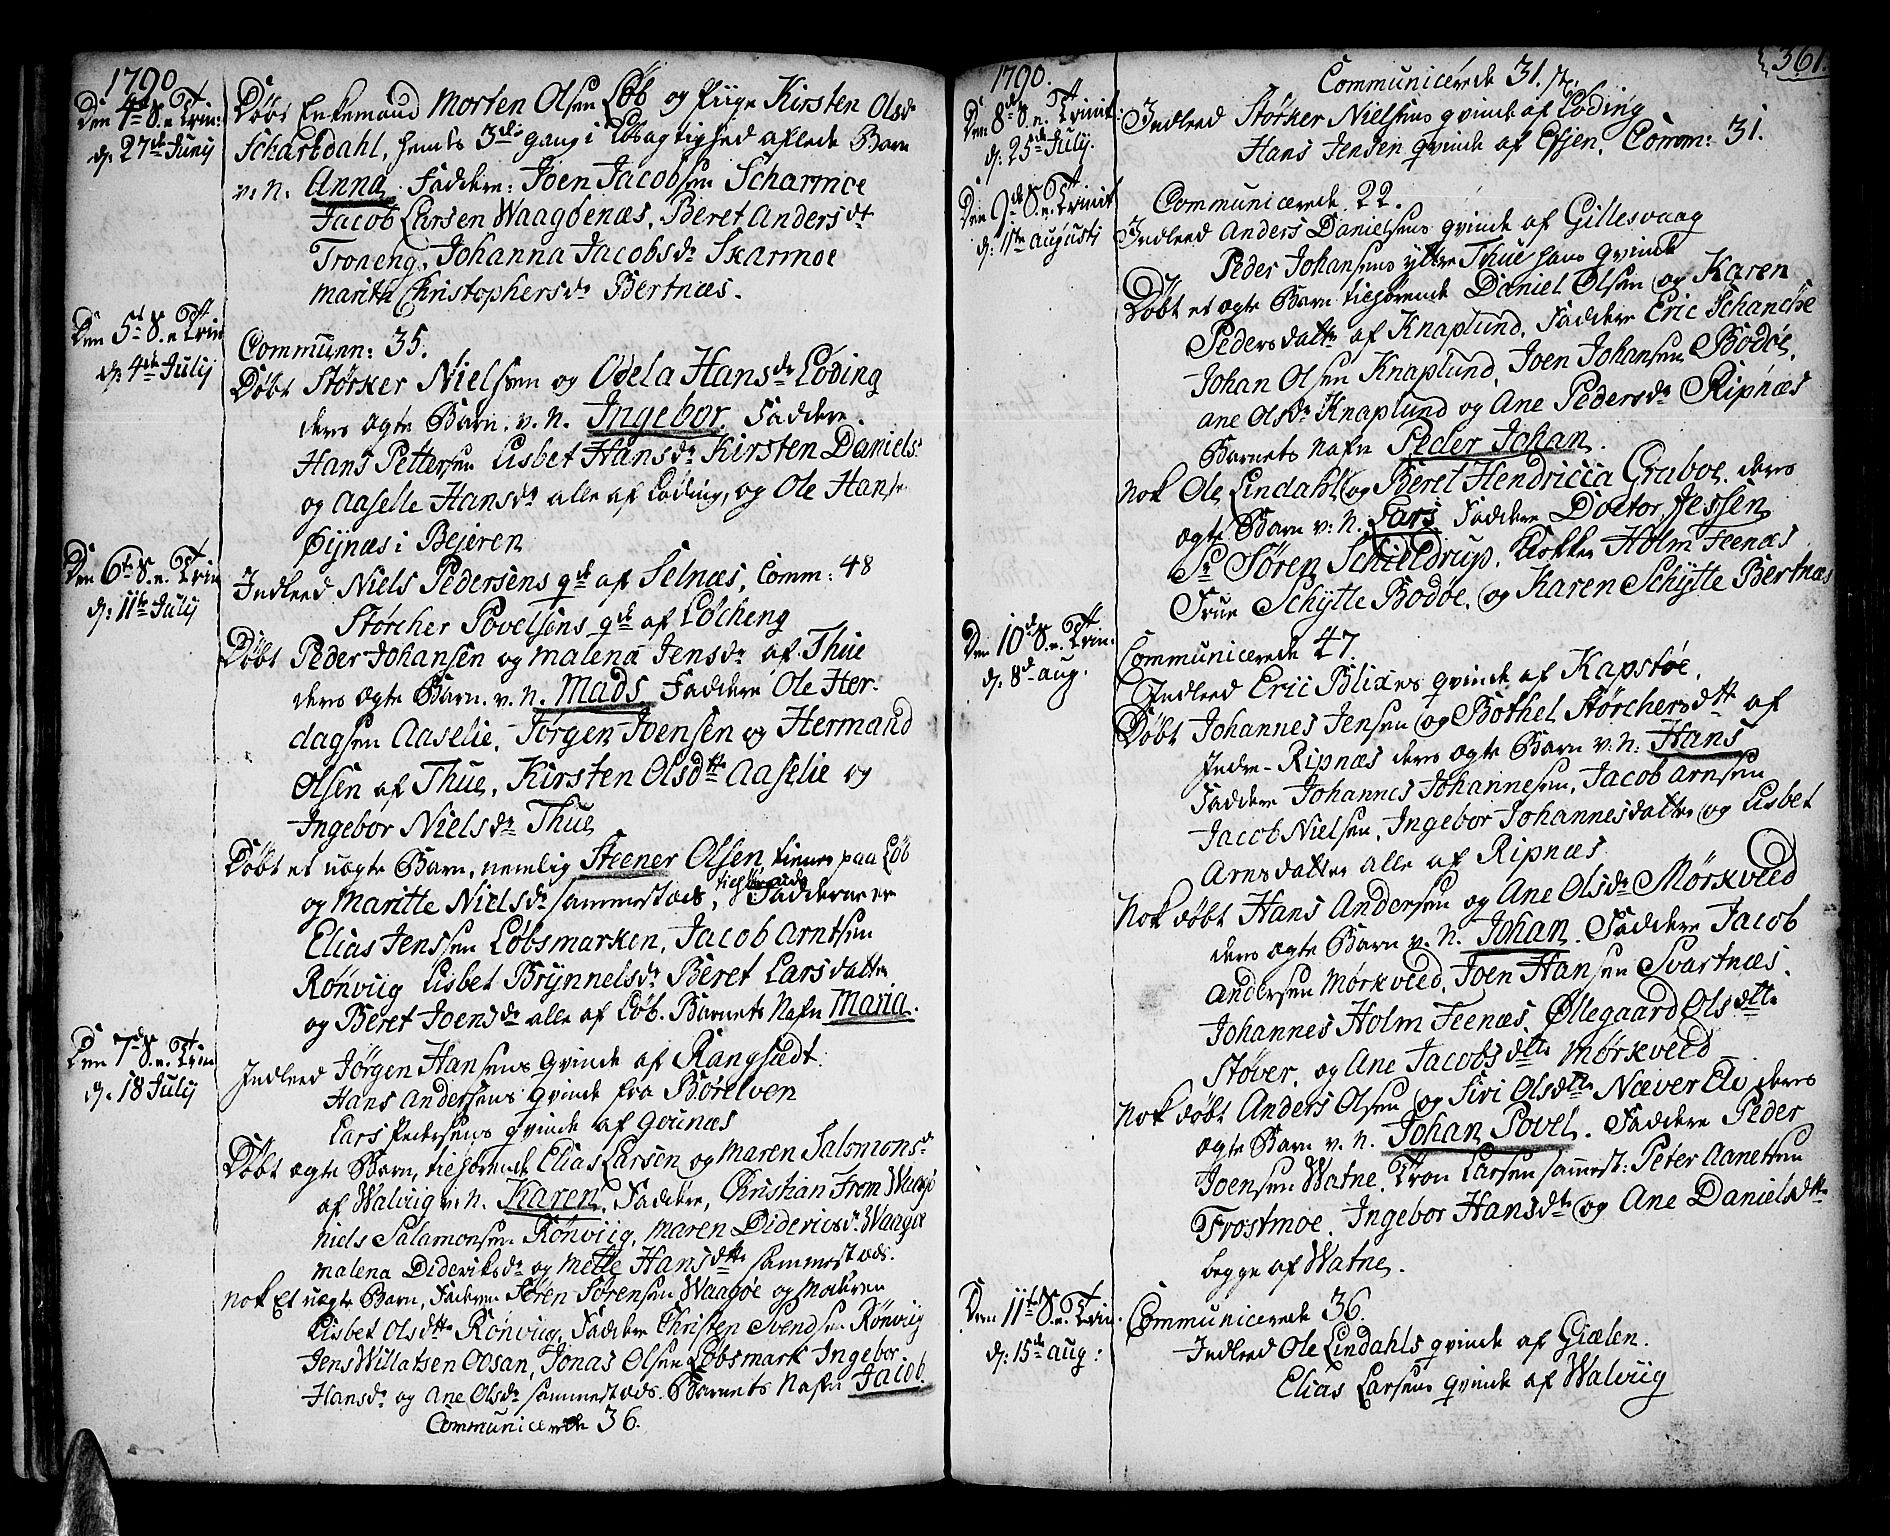 1790.
Den 4de S. e. Trin:
d: 27de Junij
Døbt Enkemand Morten Olsen Løb og Pige Kirsten Olsd
Scharsdahl, hendes 3die gang i Løsagtighed aflede Barn
v. N. Anna. Faddere: Joen Jacobsen Scharmoe
Jacob Larsen Waagøenæs, Beret Andersdt
Troneng, Johanna Jacobsdr Skarmoe
Marith Christophersdr Bertnæs.
Den 5te S. e. Trin
d: 4de July
Communn: 35.
Døbt Størker Nielsen og Odela Hansdr Løding
deres ægte Barn. v. N. Ingebor. Faddere.
Hans Pettersen Lisbet Hansdr Kirsten Daniels:
og Aaselle Hansdr alle af Løding, og Ole Hans
Øijnæs i Bejeren
Den 6te S. e. Trin
d: 11te July
Indleed Niels Pedersens qde af Selnæs, Comm: 48
Størcher Povelsens qde af Løcheng
Døbt Peder Johansen og Malena Jensdr af Thue
deres ægte Barn. v. N. Mads. Faddere Ole Her-
dagsen Aaselie, Jørgen Joensen og Hermand
Olsen af Thue, Kirsten Olsdtr Aaselie og
Ingebor Nielsdr Thue
Døbt et uægte Barn, nemlig Steener Olsen tiener paa Løb
og Maritte Nielsdr sammesteds, tilhørende Fadderne er
Elias Jenssen Løbsmarken, Jacob Arntsen
Rønviig Lisbet Brynnelsdr Beret Larsdatter
og Beret Joensdr alle af Løb. Barnets Nafn Maria.
Den 7de S. e. Trin
d. 18 July
Indleed Jørgen Hansens Qvinde af Rangsædt.
Hans Andersens Qvinde fra Børelven
Lars Pedersens Qvinde af Godnæs
Døbt ægte Barn, tilhørende Elias Larsen og Maren Salomonsd
af Walviig v. N. Karen. Faddere, Christian From Waagø
Niels Salamonsen Rønviig, Maren Dideriesdr Waagøe
Malena Dideriksdr og Mette Hansdtr sammesteds.
Nok Et uægte Barn, Faderen Søren Sørensen Waagøe og Moderen
Lisbet Olsdtr Rønviig, Faddere Christen Svendsen Rønviig
Jens Willatsen Oosan, Jonas Olsen Løbsmark Ingebor
Hansdr og Ane Olsdr sammesteds. Barnets Nafn Jacob.
Communicerede 36.
361.
1790.
Den 8de S. e. Trinit:
d: 25de July.
Communicerede 31.
Indleed Størker Nielsens qvinde af Løding
Hans Jensen qvinde af Essen, Comm: 31.
Den 9de S. e. Trinit
d: 1ste Augusti
Communicerede 22.
Indleed Anders Danielsens qvinde af Gillesvaag
Peder Johansens yttre Thue hans qvinde
Døbt et ægte Barn tilhørende Daniel Olsen og Karen
Pedersdatter af Knaplund, Faddere Eric Schanche
Johan Olsen Knaplund, Joen Johansen Bodøe,
Ane Olsdr Knaplund og Ane Pedersdr Ripnæs
Barnets Nafn Peder Johan.
Nok Ole Lindahl og Beret Hendricca Graboe. deres
ægte Barn v: N. Lars. Faddere Doctor Jessen
Sr Søren Schieldrup, Klokker Holm Feenæs
Frue Schytte Bodøe, og Karen Schytte Bertnæs
Den 10de S. e. Trin:
d. 8de Aug.
Communicerede 47.
Indleed Eric Blixes qvinde af Kapstøe,
Døbt Johannes Jensen og Bothel Størchersdtr af
Indre-Ripnæs deres ægte Barn v. N. Hans
Faddere Johannes Johannesen, Jacob Arnsen
Jacob Nielsen, Ingebor Johannesdatter og Lisbet
Arnsdatter alle af Ripnæs
Nok døbt Hans Andersen og Ane Olsdr Mørkveed
deres ægte Barn v. N. Johan. Faddere Jacob
Andersen Mørkveed, Joen Hansen Svartnæs,
Johannes Holm Feenæs, Øllegaard Olsdtr
Støver, og Ane Jacobsdtr Mørkveed
Nok døbt Anders Olsen og Siri Olsdtr Næver Elv deres
ægte Barn v. N. Johan Povel. Faddere Peder
Joensen Watne, Tron Larsen sammest: Peter Aanetsen
Frostmoe, Ingebor Hansdtr og Ane Danielsdtr
begge af Watne.
Den 11te S. e. Trin.
d: 15de Aug:
Communicerede 36.
Indleed Ole Lindahls qvinde af Giælen.
Elias Larsens qvinde af Walviig